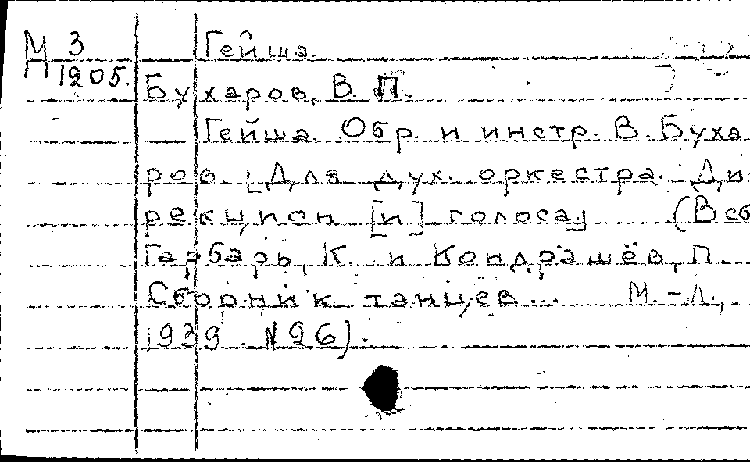 М 3 Гейша
1205. Бухаров, В. П.
Гейша. Обр. и инстр. В. Буха
ров. [Для дух. оркестра. Ди
рекцион [и] голоса] (В сб
Гарбарь, К. и Кондрашёв, П.
Сборник танцев... М.-Л.,
1939. №26).